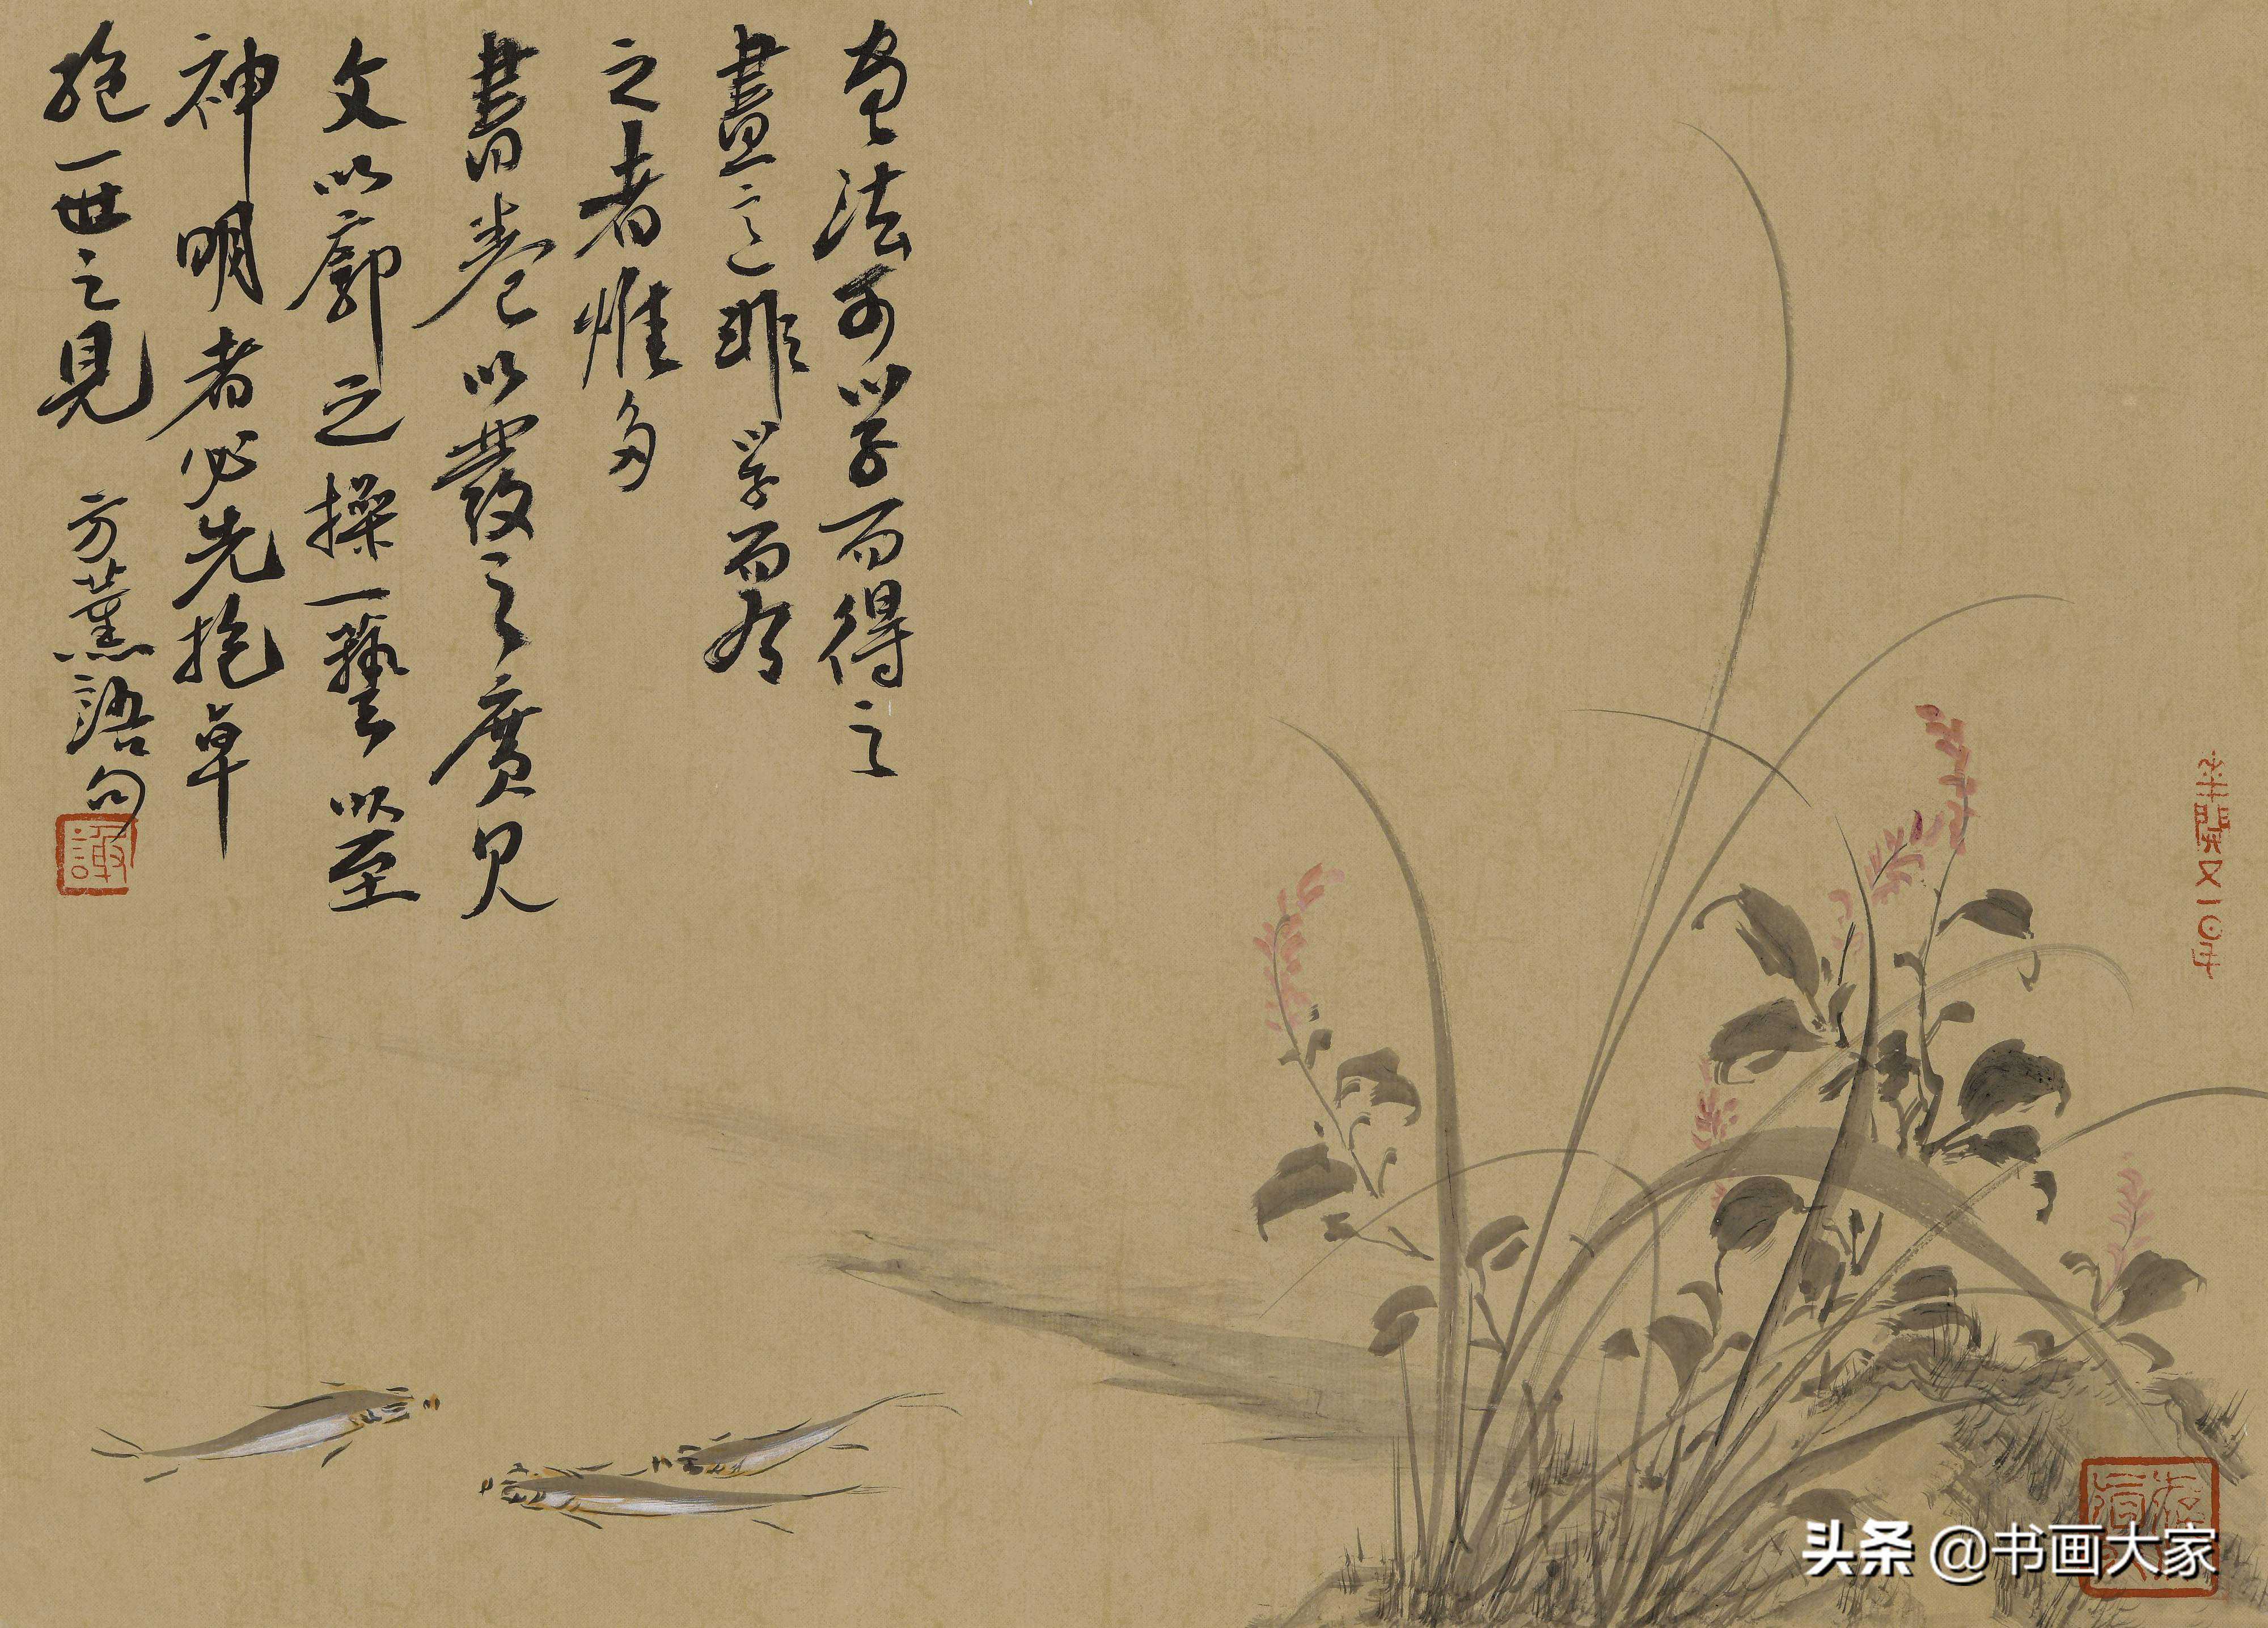 畫法可學而得之
畫意非學而有
之者惟多
書卷以發之廣見
文以廓之操一藝以至
神明者必先抱卓
絶一世之見
方薰語句
头条 @书画大家